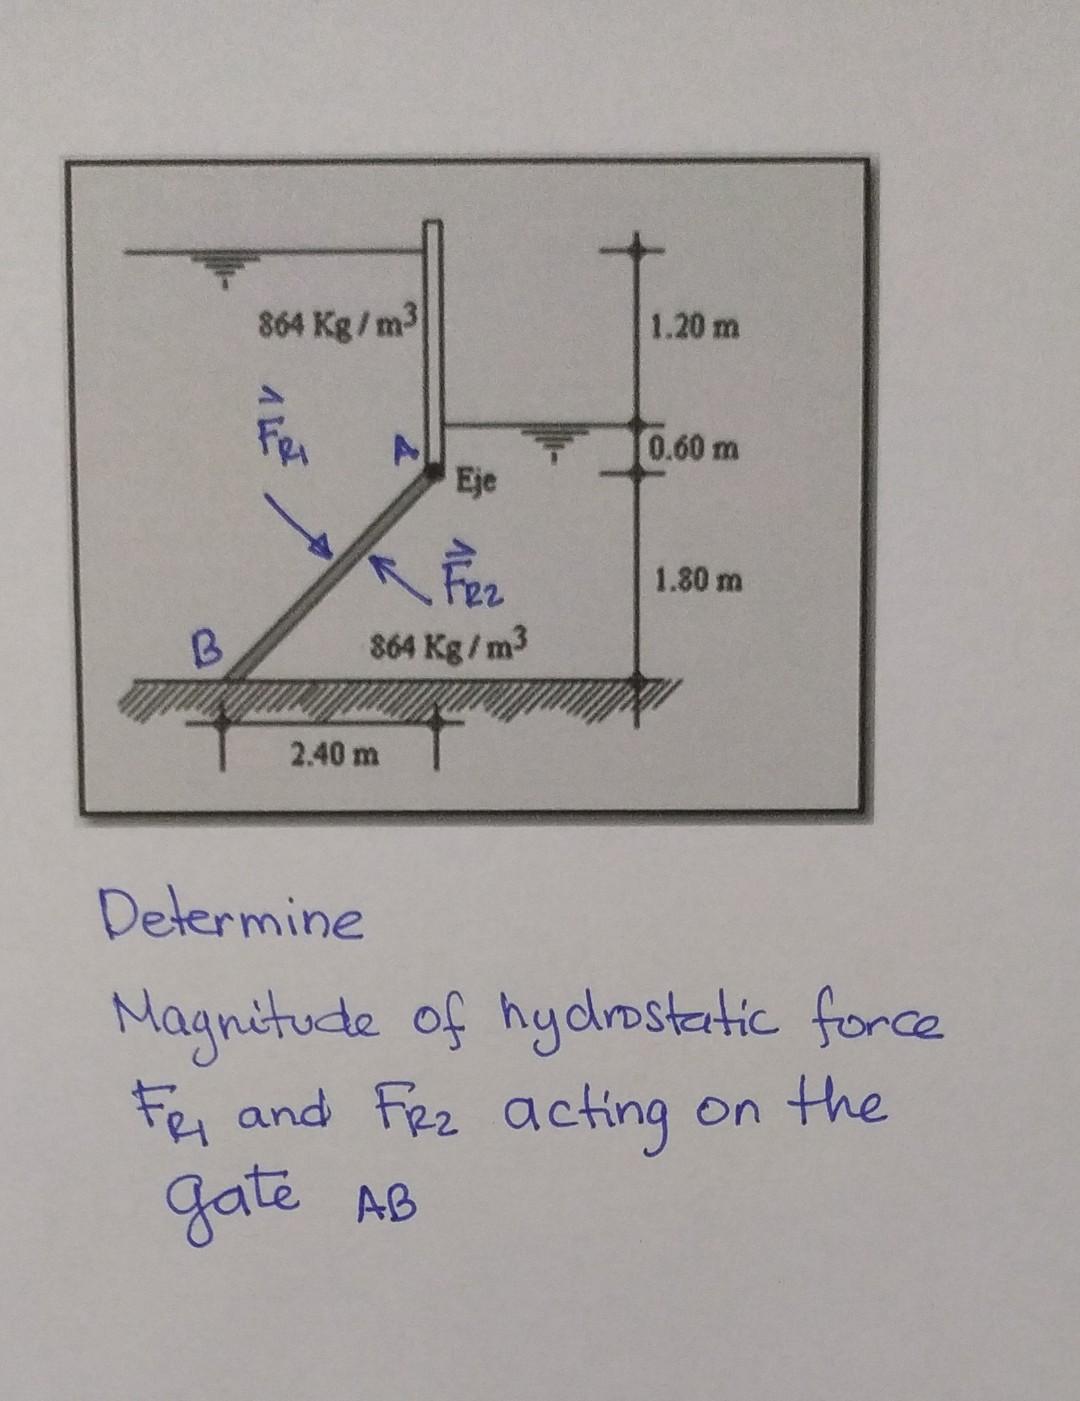 864 Kg / m³
1.20 m
F_R1
A
0.60 m
Eje
F_R2
1.80 m
B
864 Kg / m³
2.40 m
Determine
Magnitude of hydrostatic force
F_R1 and F_R2 acting on the
gate AB